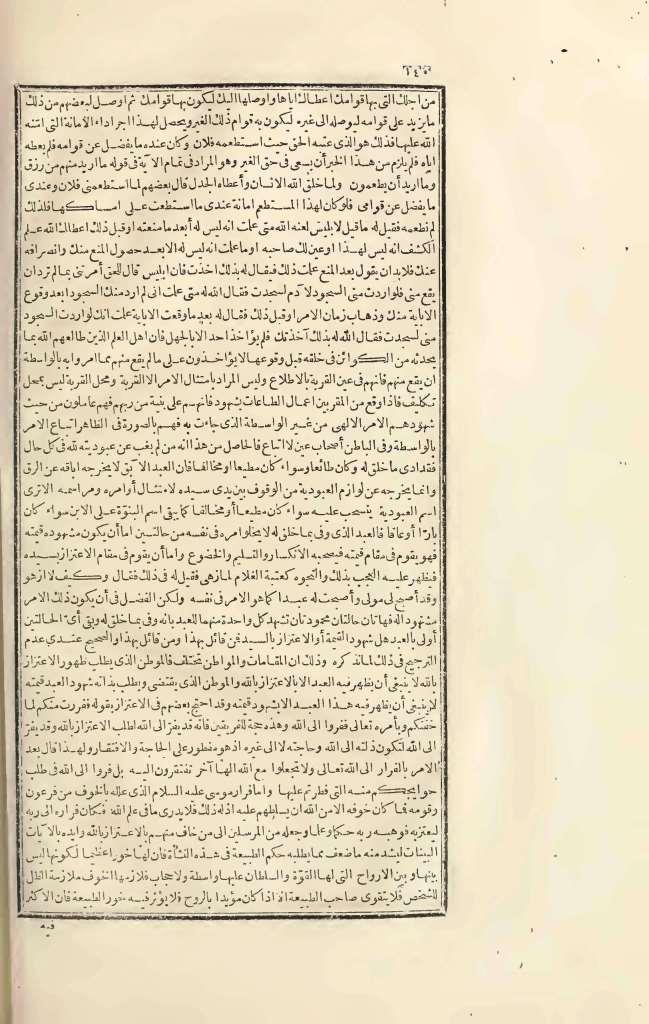 ٢٤٥
من اجلك التى بها قوامك اعطاك اياها واوصلها اليك ليكون بها قوامك ثم اوصل لبعضهم من ذلك
ما يزيد على قوامه ليوصله الى غيره ليكون به قوام ذلك الغير ويحصل لهذا اجر اداء الأمانة التى امنه
الله عليها فذلك هو الذى عتبه الحق حيث استطعمه فلان وكان عنده ما يفضل عن قوامه فلم يعطه
اياه فلم يلزم من هذا الخبر أن يسعى فى حق الغير وهو المراد فى تمام الآية فى قوله ما اريد منهم من رزق
وما أريد أن يطعمون ولما خلق الله الانسان وأعطاه الجدل قال بعضهم لما استطعمنى فلان وعندى
ما يفضل عن قوامى فلو كان لهذا المستطعم امانة عندى ما استطعت على امساكها فلذلك
لم نطعمه فقيل له ما قيل لابليس لعنه الله متى علمت انه ليس له أبعد ما منعته او قبل ذلك اعطاك الله علم
الكشف انه ليس لهذا او عين لك صاحبه او ما علمت انه ليس له الا بعد حصول المنع منك وانصرافه
عنك فلا بد ان يقول بعد المنع علمت ذلك فيقال له بذلك اخذت فان ابليس قال للحق أمرتنى بما لم ترد ان
يقع منى فلو اردت منى السجود لآدم لسجدت فقال الله له متى علمت انى لم ارد منك السجود ابعد وقوع
الاباية منك وذهاب زمان الامر او قبل ذلك فقال له بعد ما وقعت الاباية علمت انك لو اردت السجود
منى لسجدت فقال الله له بذلك آخذتك فلم يؤاخذ احد الا بالجهل فان اهل العلم الذين طالعهم الله بما
يحدثه من الكوائن فى خلقه قبل وقوعها لا يؤاخذون على ما لم يقع منهم مما امروا به بالواسطة
ان يقع منهم فانهم فى عين القربة بالاطلاع وليس المراد بامتثال الامر الا القربة ومحل القربة ليس بمحل
تكليف فاذا وقع من المقربين اعمال الطاعات بشهود فانهم على بينة من ربهم فهم عاملون من حيث
شهودهم الامر الالهى من غير الواسطة الذى جاءت به فهم بالصورة فى الظاهر اتباع الامر
بالواسطة وفى الباطن أصحاب عين لا اتباع فالحاصل من هذا انه من لم يغب عن عبوديته لله فى كل حال
فقد ادى ما خلق له وكان طائعا وسواء كان مطيعا او مخالفا فان العبد الآبق لا يخرجه اباقه عن الرق
وانما يخرجه عن لوازم العبودية من الوقوف بين يدى سيده لامتثال أوامره ومراسمه الا ترى
اسم العبودية ينسحب عليه سواء كان مطيعا أو مخالفا كما يبقى اسم البنوّة على الابن سواء كان
بارّا أو عاقا فالعبد الذى وفى بما خلق له لا يخلو امره فى نفسه من حالتين اما أن يكون مشهوده قيمته
فهو يقوم فى مقام قيمته فيصحبه الانكسار والتسليم والخضوع واما أن يقوم فى مقام الاعتزاز بسيده
فيظهر عليه العجب بذلك والنخوة كعتبة الغلام لما زهى فقيل له فى ذلك فقال وكيف لا ازهو
وقد أصبح لى مولى وأصبحت له عبدا كما هو الامر فى نفسه ولكن الفضل فى أن يكون ذلك الامر
مشهودا له فهاتان حالتان محمودتان تشهد كل واحدة منهما للعبد بانه وفى بما خلق له وبقى أىّ الحالتين
أولى بالعبد هل شهود القيمة أو الاعتزاز بالسيد فمن قائل بهذا ومن قائل بهذا والصحيح عندى عدم
الترجيح فى ذلك لما نذكره وذلك ان المقامات والمواطن تختلف فالموطن الذى يطلب ظهور الاعتزاز
بالله لا ينبغى أن يظهر فيه العبد الا بالاعتزاز بالله والموطن الذى يقتضى ويطلب بذاته شهود العبد قيمته
لا ينبغى أن يظهر فيه هذا العبد الا بشهود قيمته وقد احتج بعضهم فى الاعتزاز بقوله ففررت منكم لما
خفتكم وبأمره تعالى ففروا الى الله وهذه حجة للفريقين فانه قد يفر الى الله لطلب الاعتزاز بالله وقد يفرّ
الى الله لتكون ذلته الى الله وحاجته لا الى غيره اذ هو مفطور على الحاجة والافتقار ولهذا قال بعد
الامر بالفرار الى الله تعالى ولا تجعلوا مع الله الها آخر تفتقرون اليه بل فروا الى الله فى طلب
حوائجكم منه التى فطرتم عليها واما فرار موسى عليه السلام الذى علله بالخوف من فرعون
وقومه فما كان خوفه الا من الله ان يسلطهم عليه اذ له ذلك فلا يدرى ما فى علم الله فكان فراره الى ربه
ليعتز به فوهب له ربه حكما وعلما وجعله من المرسلين الى من خاف منهم بالاعتزاز بالله وايده بالآيات
البينات ليشد منه ما ضعف مما يطلبه حكم الطبيعة فى هذه النشأة فان لها خورا عظيما لكونها ليس
بينها وبين الارواح التى لها القوّة والسلطان عليها واسطة ولا حجاب فلازمها الخوف ملازمة الظل
للشخص فلا يتقوى صاحب الطبيعة الا اذا كان مؤيدا بالروح فلا يؤثر فيه خور الطبيعة فان الاكثر
فيه